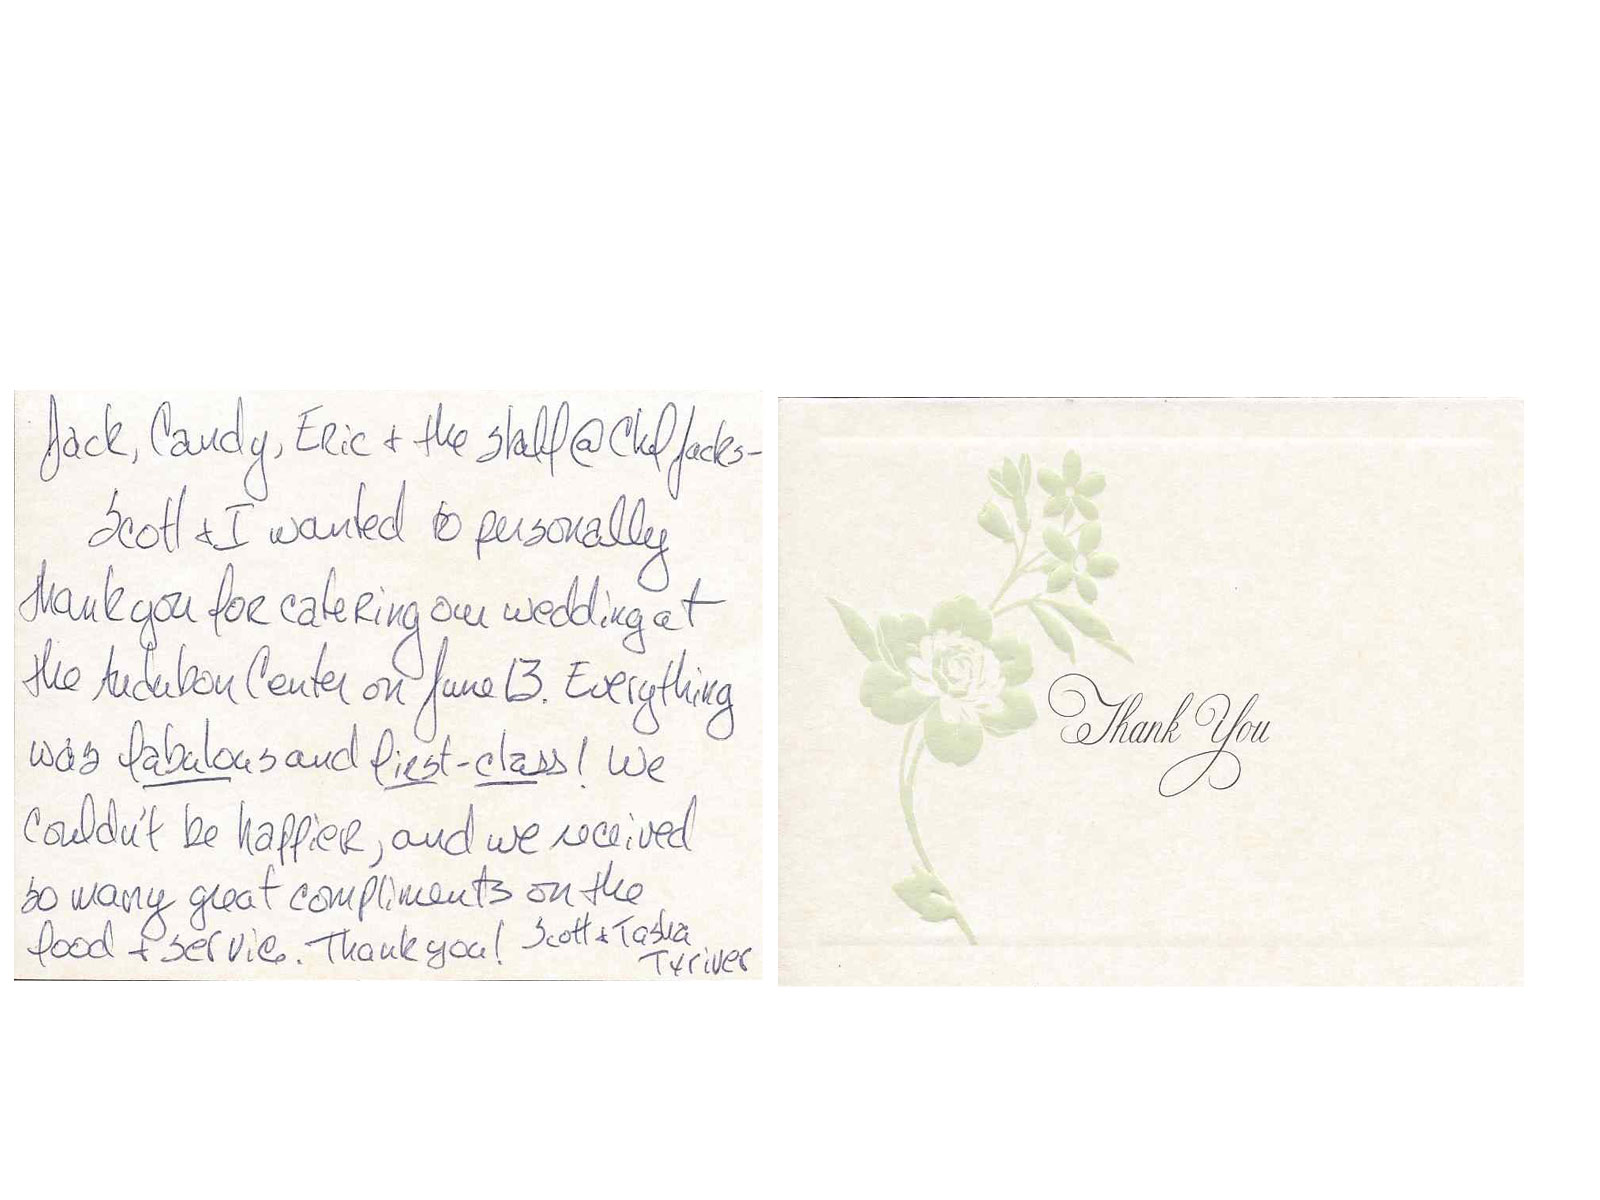 Jack, Candy, Eric + the staff @ Chef Jacks-
Scott + I wanted to personally
thank you for catering our wedding at
the Audubon Center on June 13. Everything
was fabulous and first-class! We
couldn't be happier, and we received
so many great compliments on the
food + service. Thank you! Scott + Tasha
Thank You